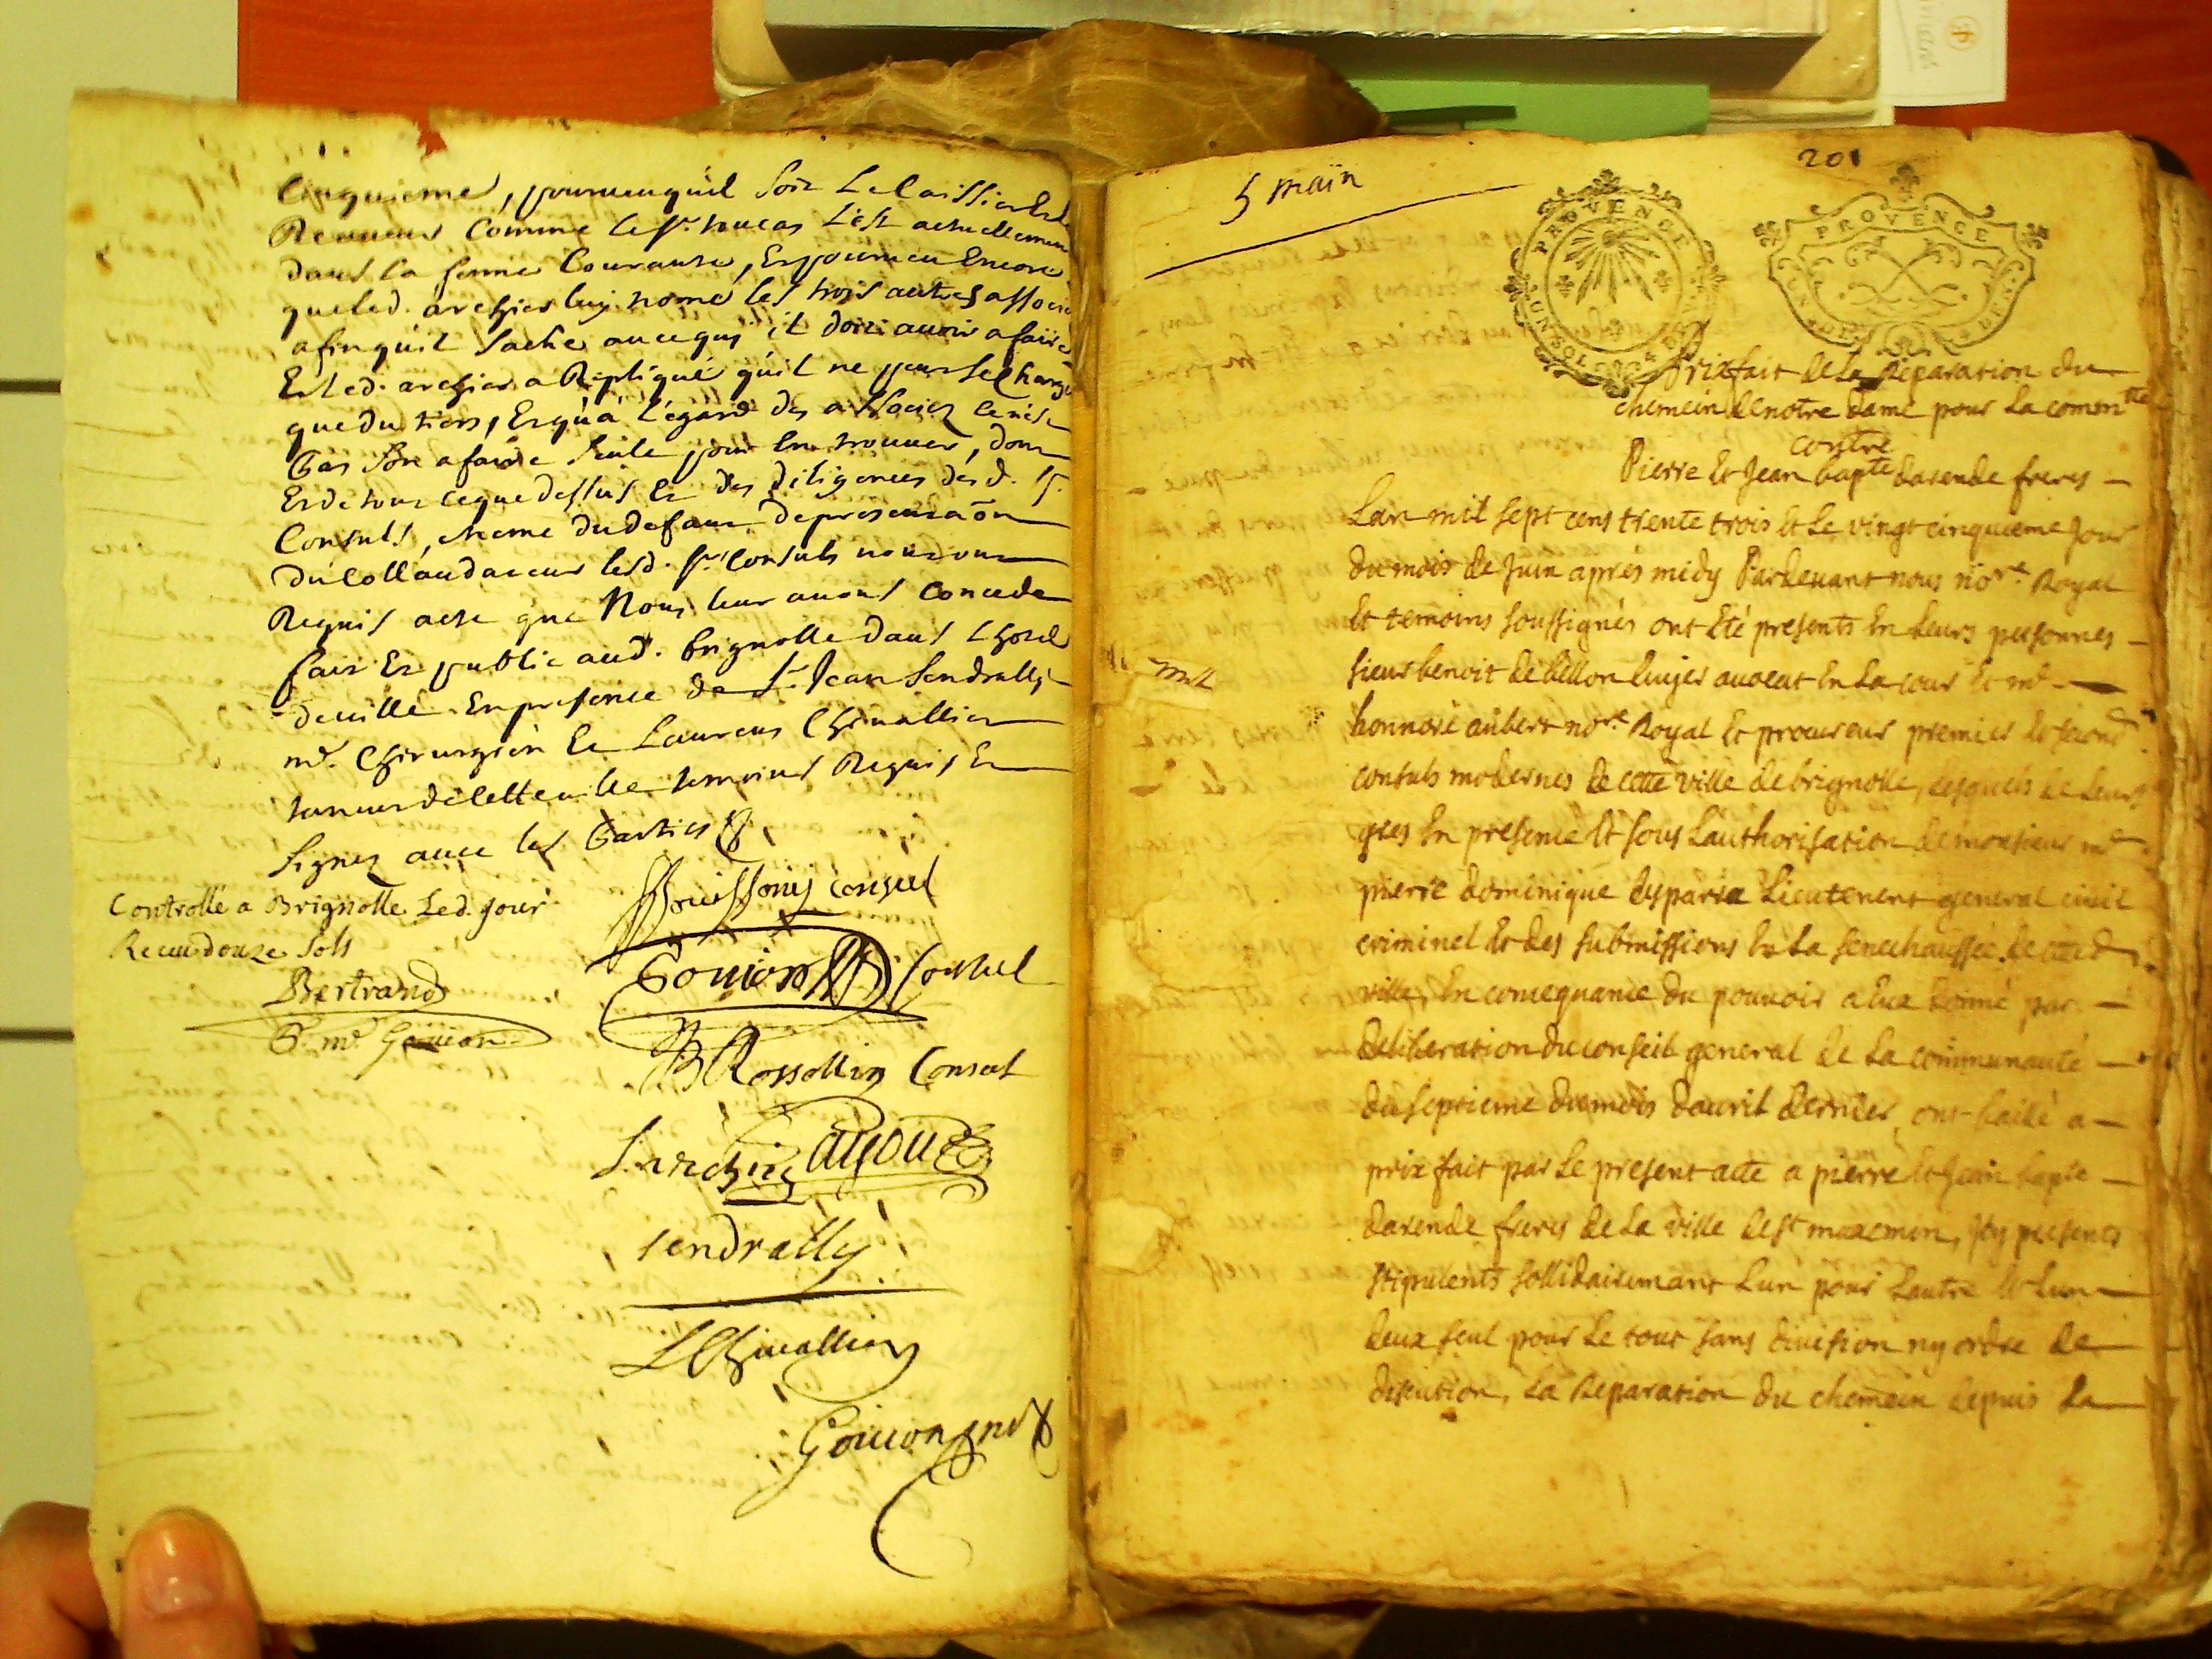 Cinquieme, pourveu qu'il soit le Caissier Et le
Receveur Comme le sr. toucas L'est actuellement
dans la ferme Courante, Et pourveu Encore
que led. archier luy nome les trois autres associés
afin qu'il sache avec quy il doit avoir a faire
Et led. archier a Repliqué qu'il ne peut se charger
que du tiers, Et qu'a l'égard des associez ce n'est
pas son afaire seule pour En trouver, dont
Et de tout ce que dessus Et des diligences desd. srs.
Consuls, meme du defaut de presentaōn
du lesd. srs. Consuls nous ont
Requis acte que Nous leur avons Concede
fait Et publié aud. brignolle dans L'hotel
de ville En presence de sr. Jean Sendrally
me. Chirurgien Et Laurens Chivallier
taneur de cette ville temoins Requis Et
signez avec les Parties
Controllé a Brignolle Led. jour
Receu douze sols
Bertrand
P. me. Goujon
Consul
Goujon Consul
Rossollin Consul
Sendrally
LChivallier
Goujon not
5 main
201
PROVENCE
PROVENCE
Prixfait de La Reparation du
chemein de notre dame pour La comontté
contre
Pierre Et Jean bapte darende freres
Lan mil sept cens trente trois Et Le vingt cinquieme Jour
du mois de Juin aprés midy Pardevant nous nore. Royal
Et temoins soussignés ont Eté presents En Leurs personnes
sieur benoit de bellon avocat En La cour Et me
honnoré aubert nore Royal Et procureur premier Et second
consuls modernes de cette ville de brignolle, lesquels de Leurs
grés En presence Et sous Lauthorisation de monsieur me
pierre dominique desparra Lieutenent general civil
criminel Et des submissions En La senechaussée de cetted
ville, En consequance du pouvoir a Eux donné par
deliberation du conseil general de La communauté
du septieme du mois davril dernier, ont baillé a
prix fait par Le present acte a pierre Et Jean bapte
darende freres de La ville de st maxemin, Icy presents
stipulents sollidairemant Lun pour Lautre Et Lun
deux seul pour Le tout sans division ny ordre de
discution, La Reparation du chemein depuis La